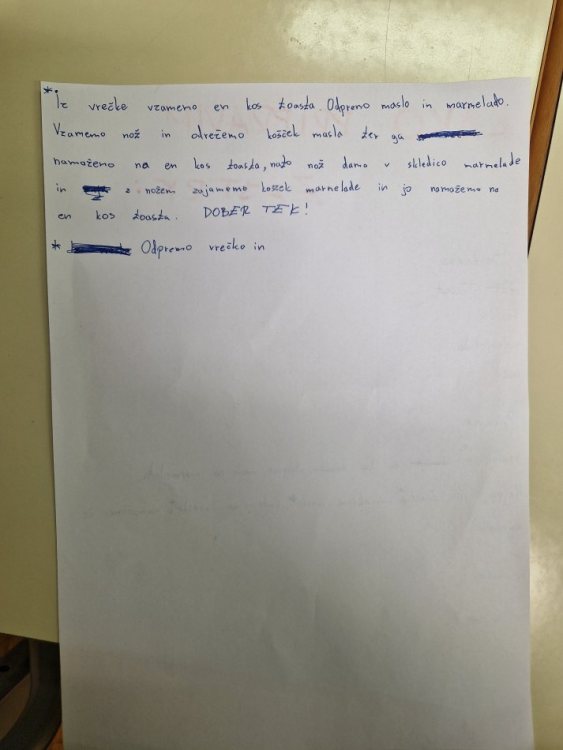 * Iz vrečke vzamemo en kos toasta. Odpremo maslo in marmelado.
Vzamemo nož in odrežemo košček masla ter ga
namažemo na en kos toasta, nato nož damo v skledico marmelade
in z nožem zajamemo koszek marmelade in jo namažemo na
en kos toasta. DOBER TEK!
* Odpremo vrečko in